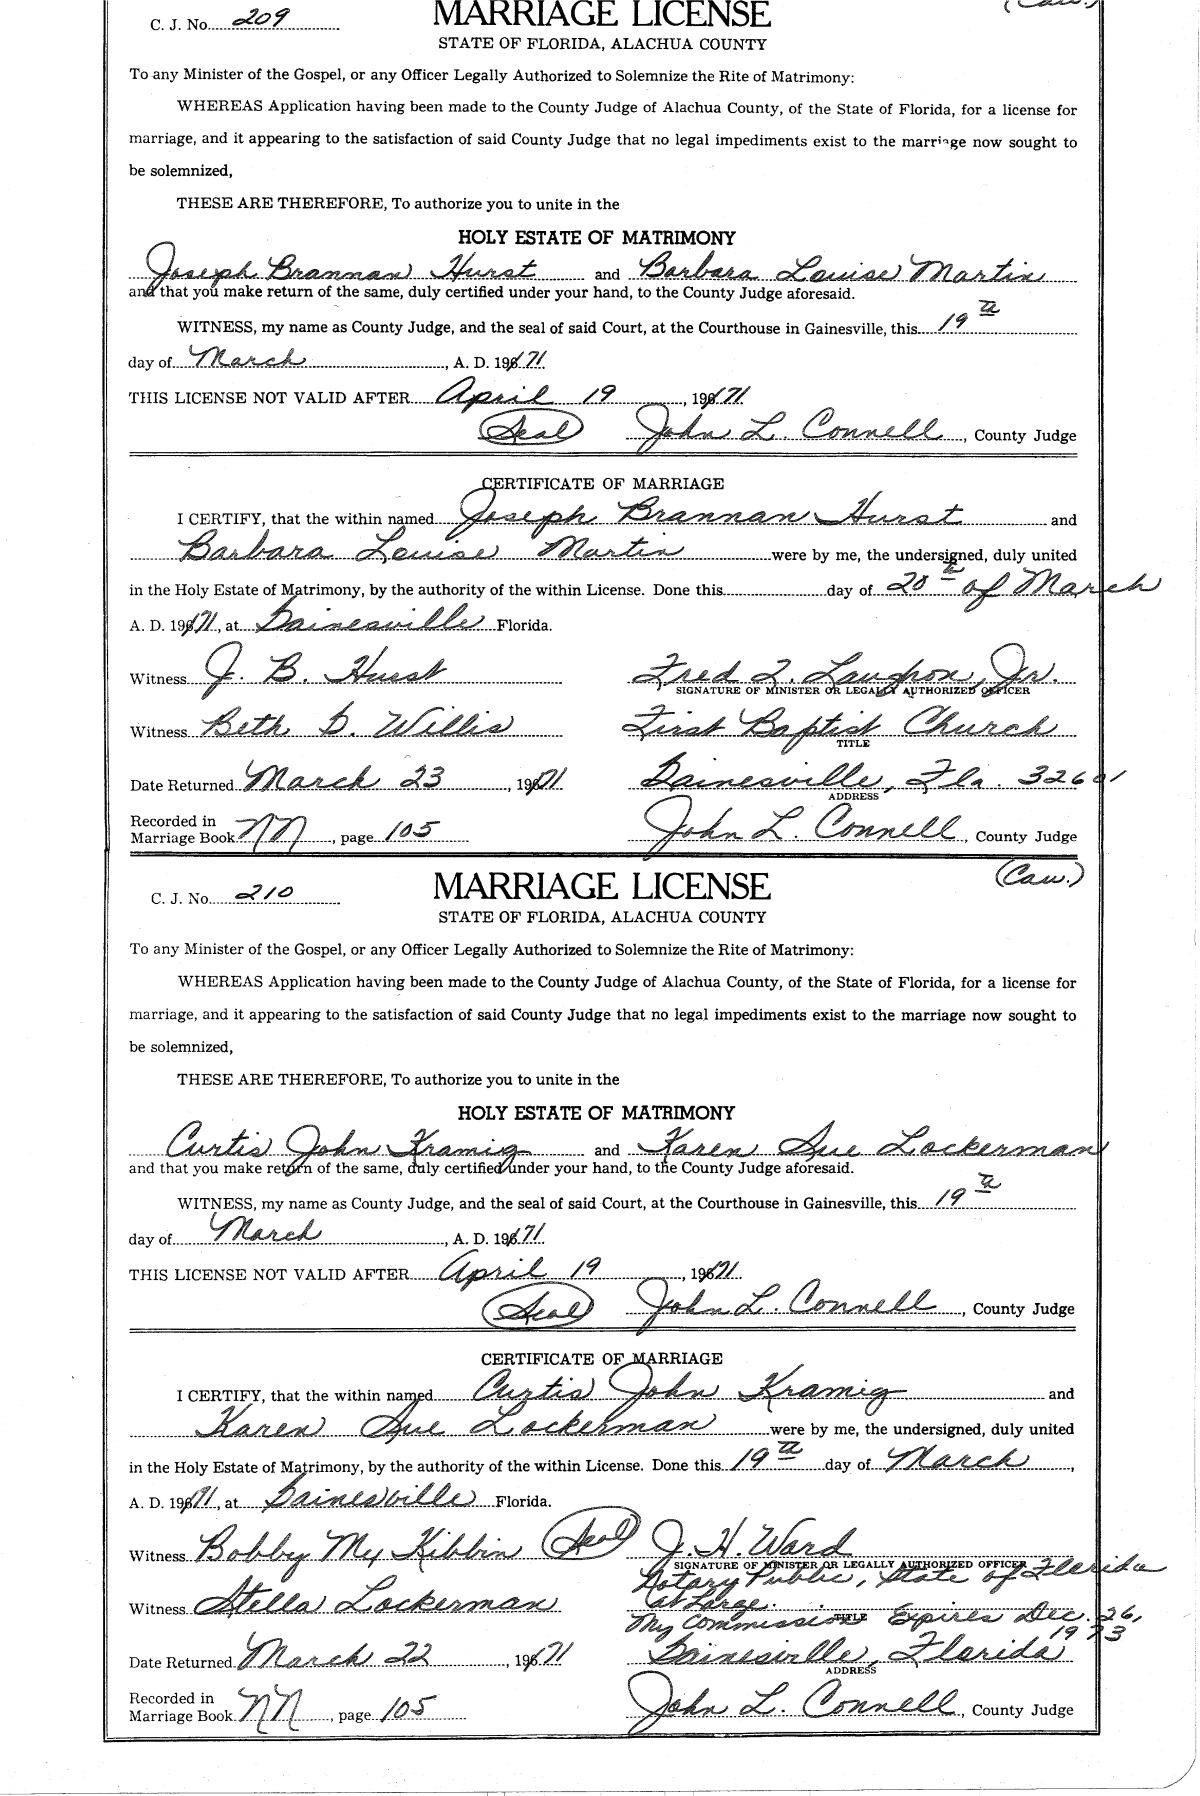 C. J. No. 209
MARRIAGE LICENSE
(Cau.)
STATE OF FLORIDA, ALACHUA COUNTY
To any Minister of the Gospel, or any Officer Legally Authorized to Solemnize the Rite of Matrimony:
WHEREAS Application having been made to the County Judge of Alachua County, of the State of Florida, for a license for
marriage, and it appearing to the satisfaction of said County Judge that no legal impediments exist to the marriage now sought to
be solemnized,
THESE ARE THEREFORE, To authorize you to unite in the
HOLY ESTATE OF MATRIMONY
Joseph Brannan Hurst and Barbara Louise Martin
and that you make return of the same, duly certified under your hand, to the County Judge aforesaid.
WITNESS, my name as County Judge, and the seal of said Court, at the Courthouse in Gainesville, this 19th
day of March, A. D. 1971
THIS LICENSE NOT VALID AFTER April 19, 1971
Seal John L. Connell, County Judge
CERTIFICATE OF MARRIAGE
I CERTIFY, that the within named Joseph Brannan Hurst and
Barbara Louise Martin were by me, the undersigned, duly united
in the Holy Estate of Matrimony, by the authority of the within License. Done this day of 20th of March
A. D. 1971, at Gainesville Florida.
Witness J. B. Hurst Fred T. Laughon, Jr.
SIGNATURE OF MINISTER OR LEGALLY AUTHORIZED OFFICER
Witness Beth G. Willis First Baptist Church
TITLE
Date Returned March 23, 1971 Gainesville, Fla. 32601
ADDRESS
Recorded in
Marriage Book NN, page 105 John L. Connell, County Judge
(Cau.)
C. J. No. 210
MARRIAGE LICENSE
STATE OF FLORIDA, ALACHUA COUNTY
To any Minister of the Gospel, or any Officer Legally Authorized to Solemnize the Rite of Matrimony:
WHEREAS Application having been made to the County Judge of Alachua County, of the State of Florida, for a license for
marriage, and it appearing to the satisfaction of said County Judge that no legal impediments exist to the marriage now sought to
be solemnized,
THESE ARE THEREFORE, To authorize you to unite in the
HOLY ESTATE OF MATRIMONY
Curtis John Kramig and Karen Sue Lockerman
and that you make return of the same, duly certified under your hand, to the County Judge aforesaid.
WITNESS, my name as County Judge, and the seal of said Court, at the Courthouse in Gainesville, this 19th
day of March, A. D. 1971
THIS LICENSE NOT VALID AFTER April 19, 1971
Seal John L. Connell, County Judge
CERTIFICATE OF MARRIAGE
I CERTIFY, that the within named Curtis John Kramig and
Karen Sue Lockerman were by me, the undersigned, duly united
in the Holy Estate of Matrimony, by the authority of the within License. Done this 19th day of March,
A. D. 1971, at Gainesville Florida.
Witness Bobby McKibbin Seal J. H. Ward
SIGNATURE OF MINISTER OR LEGALLY AUTHORIZED OFFICER
Notary Public, State of Florida
Witness Stella Lockerman at Large.
My Commission Expires Dec. 26, 1973
TITLE
Date Returned March 22, 1971 Gainesville, Florida
ADDRESS
Recorded in
Marriage Book NN, page 105 John L. Connell, County Judge